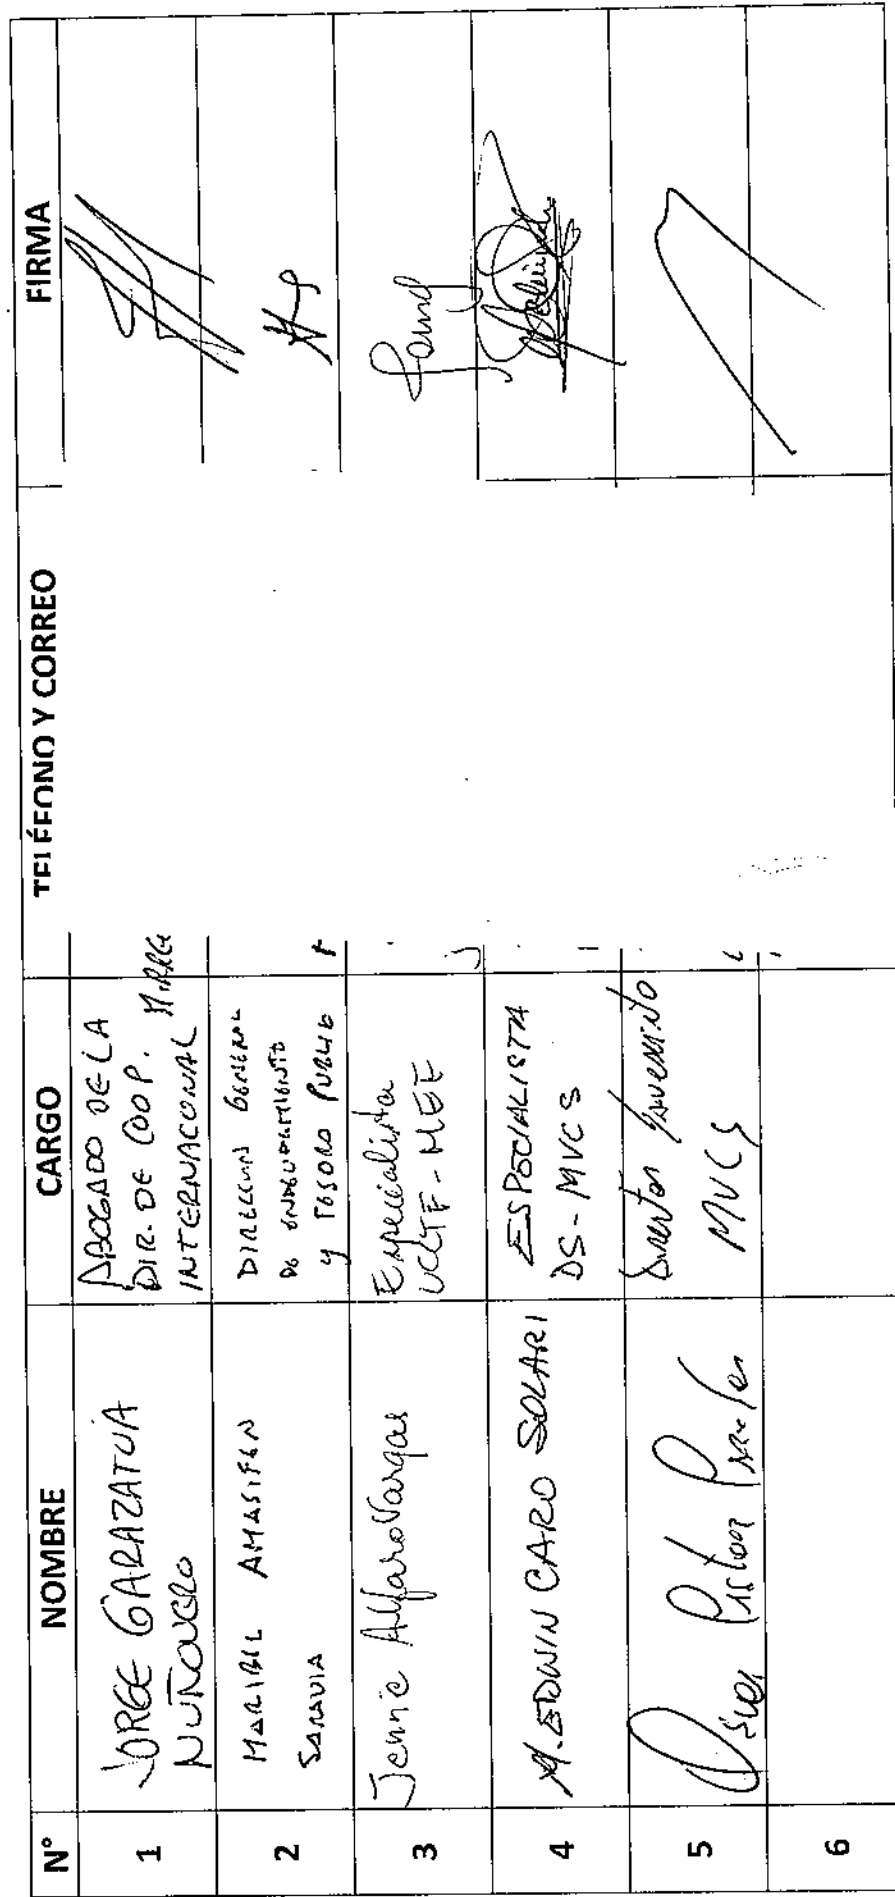 N° NOMBRE CARGO TELÉFONO Y CORREO FIRMA
1
JORGE GARAZATUA
NUÑOVERO
ABOGADO DE LA
DIR. DE COOP.
INTERNACONAL
2
MARIBEL AMASIFEN
SARAVIA
DIRECCION GENERAL
DE ENDEUDAMIENTO
y TESORO PUBLICO
3
Jennie Alfaro Vargas
Especialista
UCCTF-MEF
4
EDWIN CARO SOLARI
ESPECIALISTA
DS-MVCS
5
Pastor
Director
MVCS
6